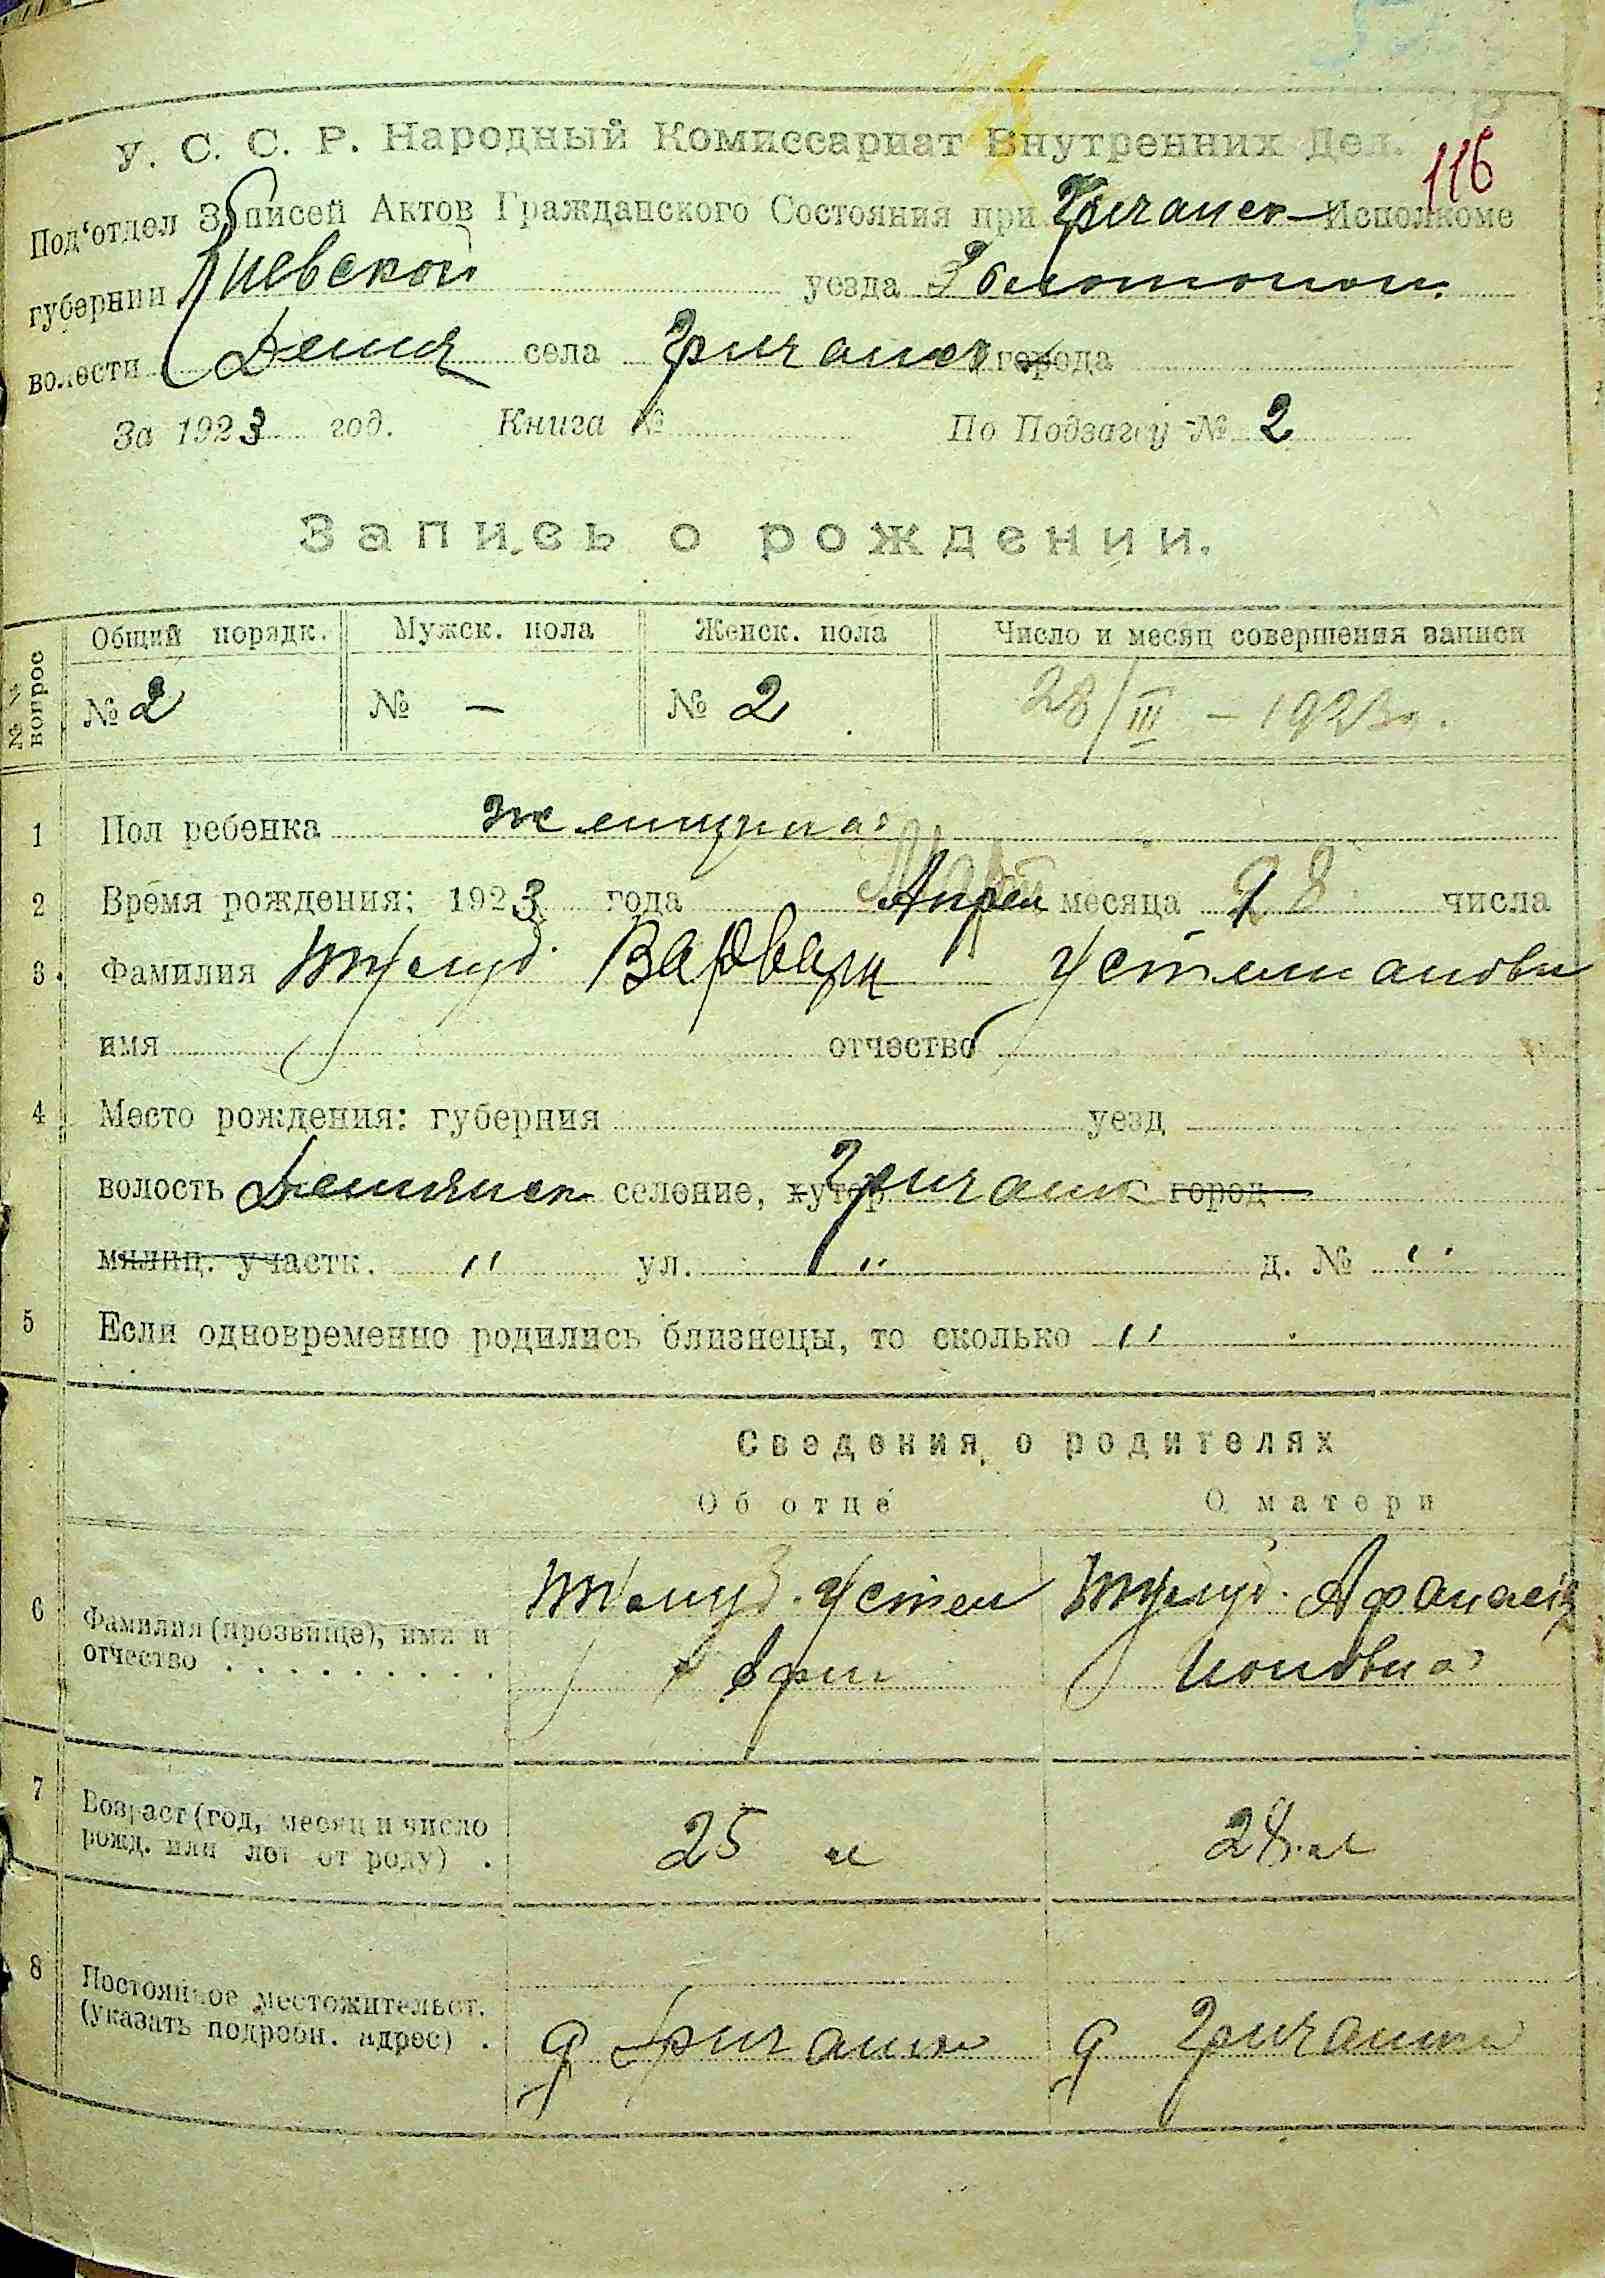 116
У. С. С. Р. Народный Комиссариат Внутренних Дел.
Под'отдел Записей Актов Гражданского Состояния при Гричанск Исполкоме
губернии Киевской уезда Золотонош.
волости села города
За 1923 год. Книга № По Подзагсу № 2
Запись о рождении.
№№ вопрос
Общий порядк. Мужск. пола Женск. пола Число и месяц совершения записи
№ 2 № — № 2 28/III – 1923 г.
1 Пол ребенка женщина
2 Время рождения: 1923 года Март Апрел месяца 28 числа
3. Фамилия Варвара
имя отчество
4 Место рождения: губерния уезд
волость селение, хутор город
милиц. участк. " ул. " д. № "
5 Если одновременно родились близнецы, то сколько "
Сведения о родителях
Об отце О матери
6 Фамилия (прозвище), имя и Устен Афанасия
отчество . . . . . . . . . Ионовна
7 Возраст (год, месяц и число
рожд. или лет от роду) . 25 л 28 л
8 Постоянное местожительст.
(указать подробн. адрес) . д Гричанки д Гричанки